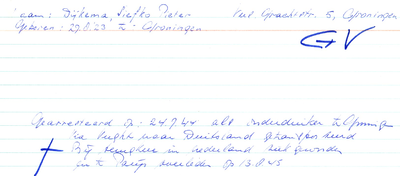 Naam: Dijkema, Siefko Pieter verl. Grachtstr. 5, Groningen
Geboren: 29.8.23 te Groningen
GV
Gearresteerd op: 24.7.44 als onderduiker te Groningen
Na vlucht naar Duitsland
Bij terugkeer in nederland ziek geworden
in te overleden op 13.8.45